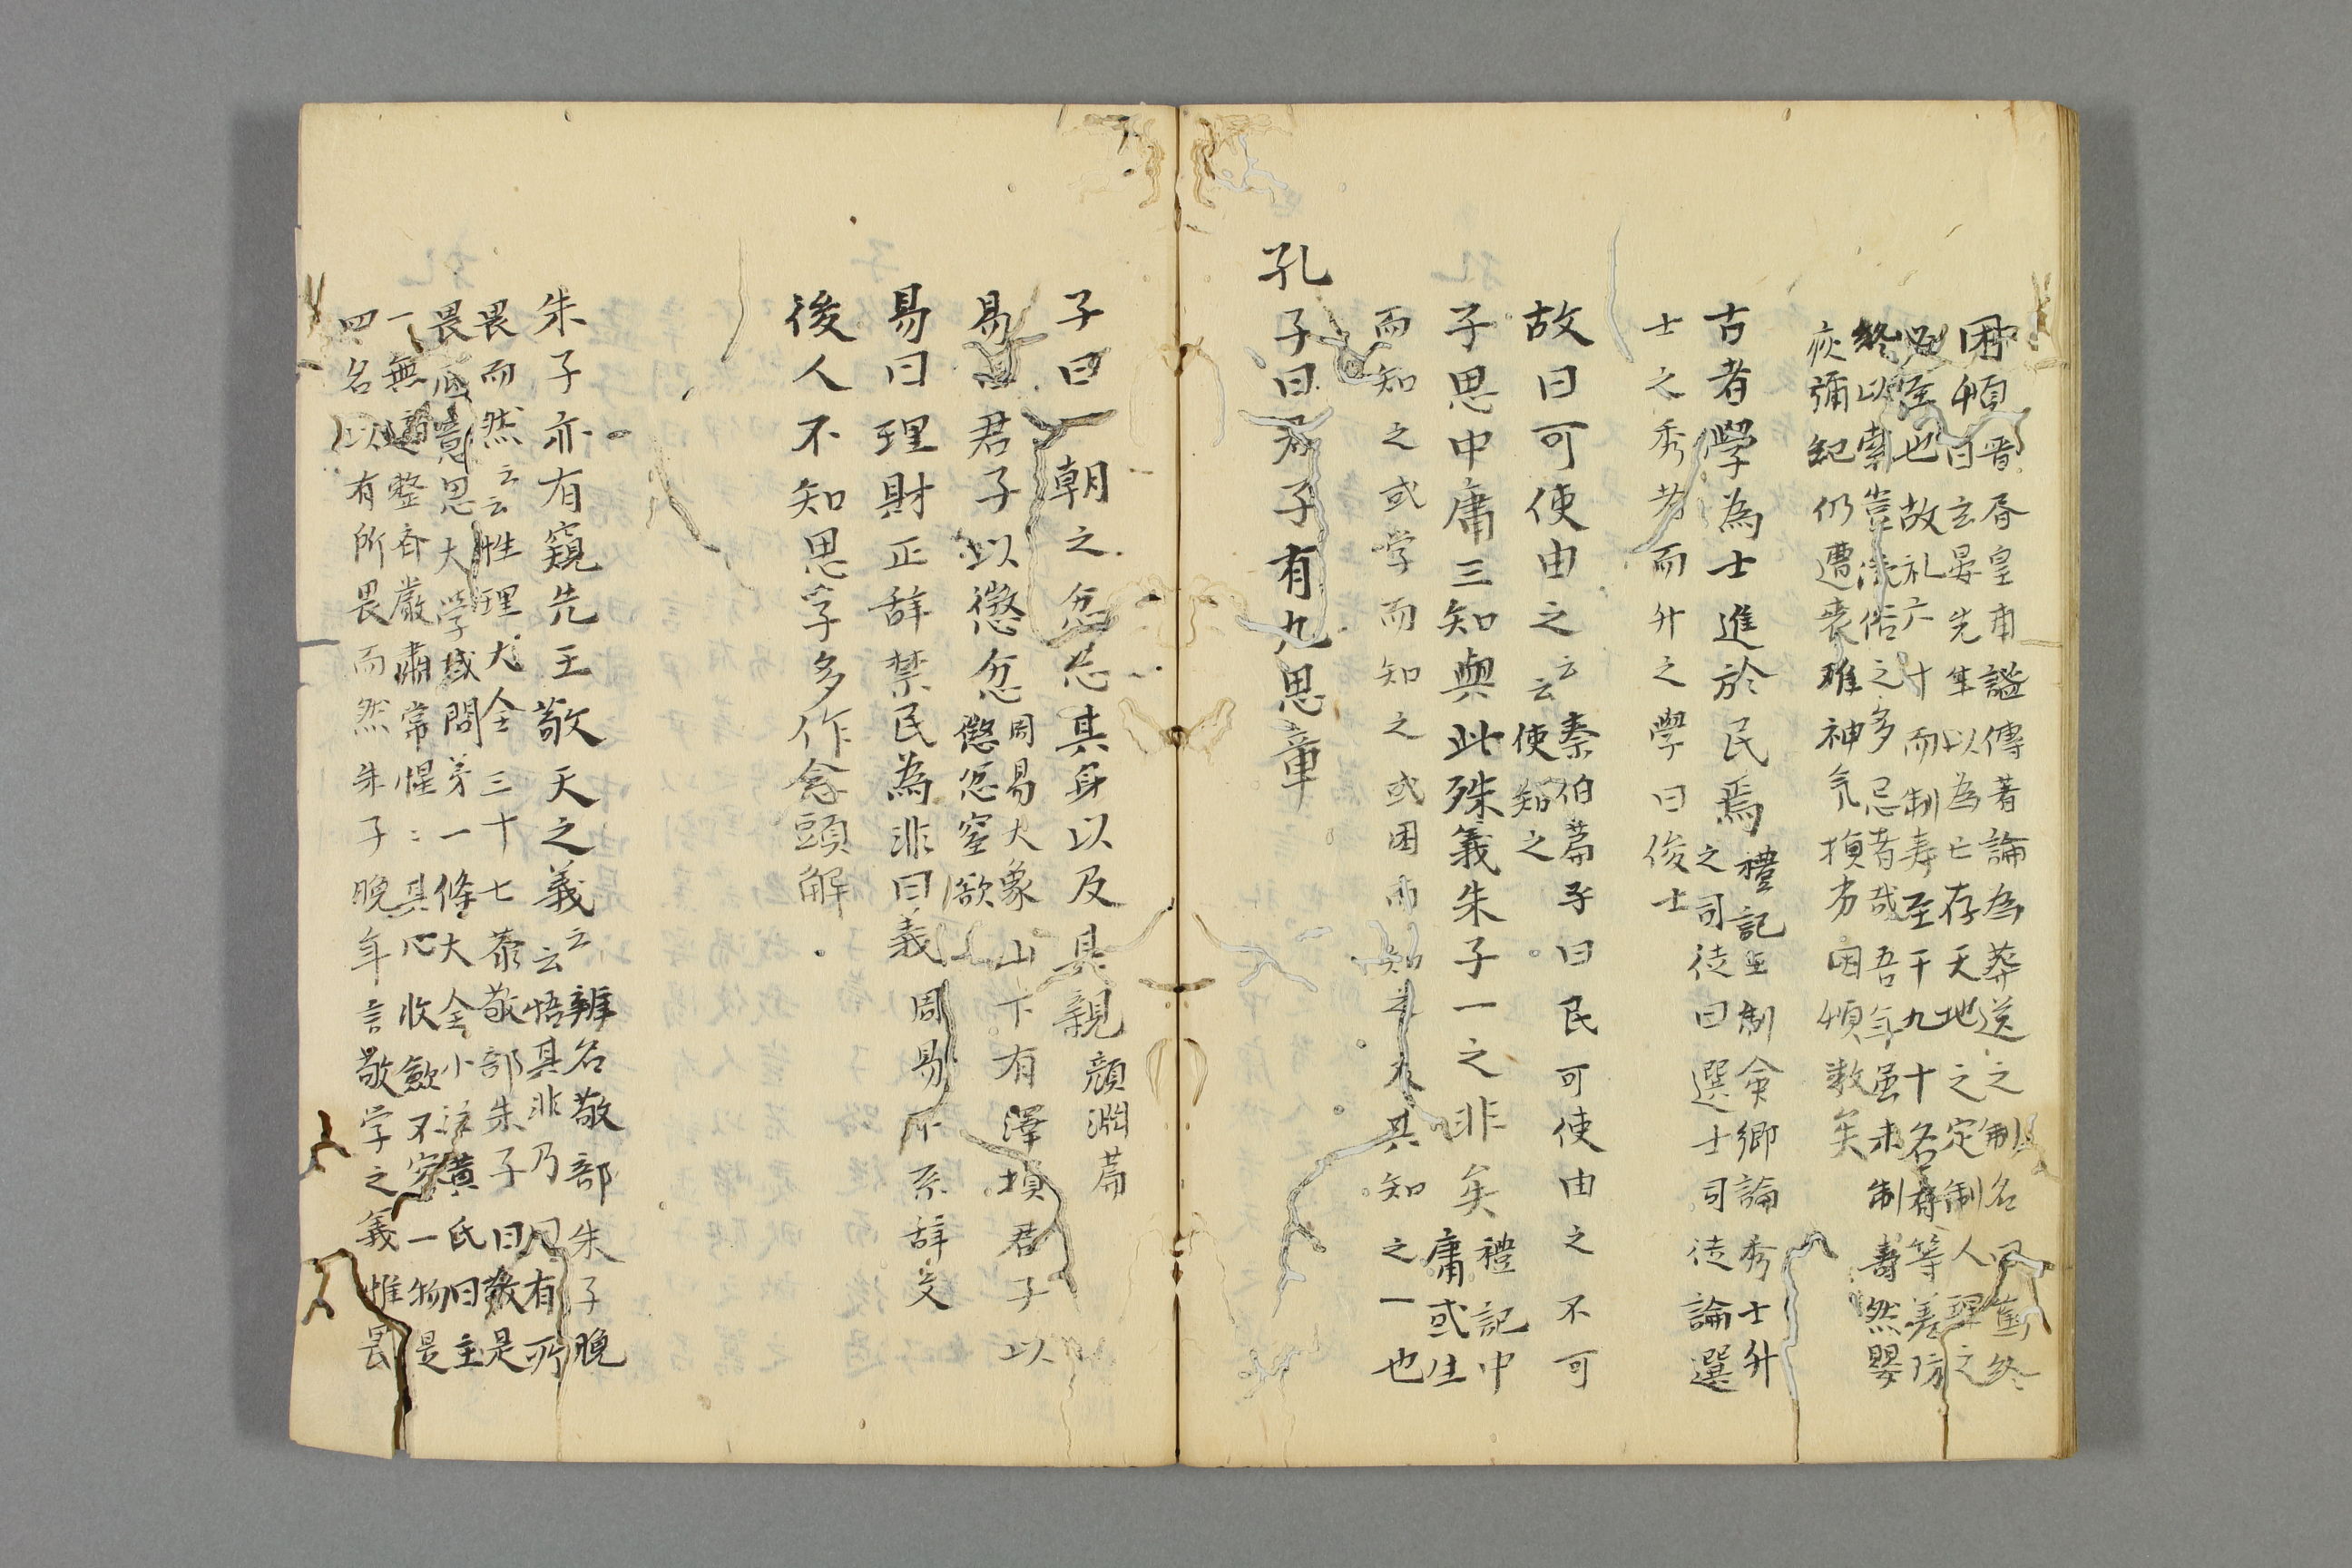 困頓晋書皇甫謐傳著論為葬送之制名曰篤終
曰玄晏先生以為亡存天地之定制人理之
必至也故礼六十而制寿至于九十各有等差防
終以素豈流俗之多忌者哉吾年虽未制壽然嬰
疢彌紀仍遭喪難神氣損劣困頓数矣
古者學為士進於民焉禮記王制命郷論秀士升
之司徒曰選士司徒論選
士之秀者而升之學曰俊士
故曰可使由之云云泰伯篇子曰民可使由之不可
使知之
子思中庸三知與此殊義朱子一之非矣禮記中
庸或生
而知之或学而知之或困而知之及其知之一也
孔子曰君子有九思章
子曰一朝之忿忘其身以及其親顔淵篇
易曰君子以懲忿周易大象山下有澤損君子以
懲忿窒慾
易曰理財正辞禁民為非曰義周易下系辞文
後人不知思字多作念頭解
朱子亦有窺先王敬天之義云云辨名敬部朱子晩
悟其非乃曰有所
畏而然云云性理大全三十七巻敬部朱子曰敬是
畏底意思大学或問第一條大全小注黄氏曰主
一無適整斉嚴肅常惺ミ其心収斂不容一物是
四名以有所畏而然朱子晩年言敬字之義惟畏